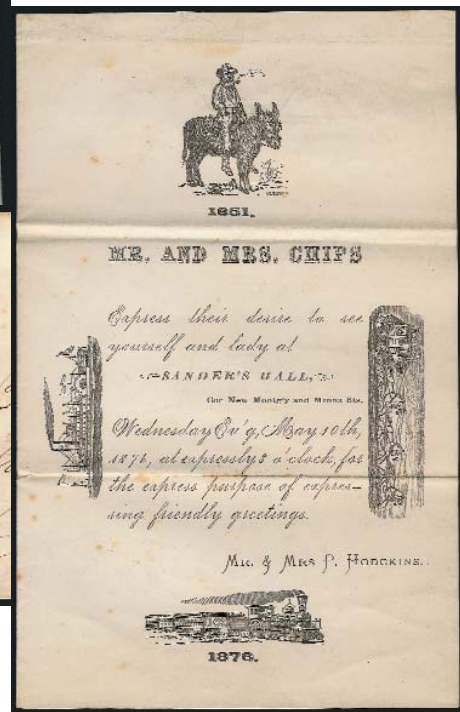 1851.
MR. AND MRS. CHIPS
Express their desire to see
yourself and lady at
SANDER'S HALL,
Cor New Montg'y and Minna Sts.
Wednesday Ev'g, May 10th,
1876, at expressly 8 o'clock, for
the express purpose of expres-
sing friendly greetings.
MR. & MRS P. HODGKINS.
1876.